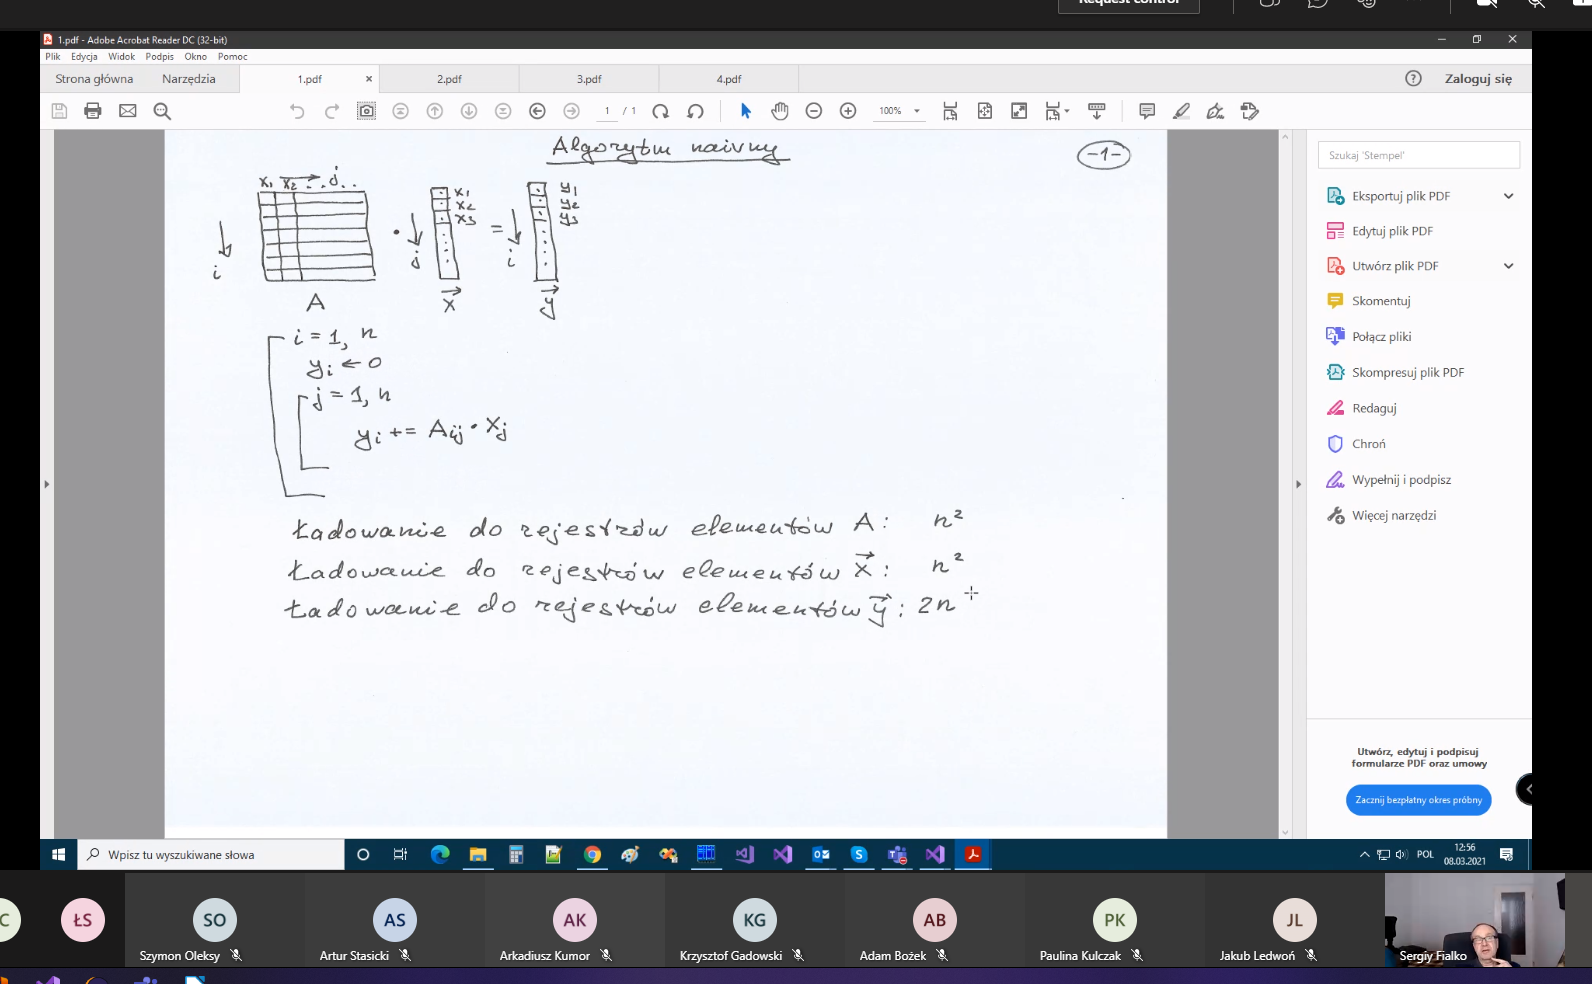 Request control
1.pdf - Adobe Acrobat Reader DC (32-bit)
Plik Edycja Widok Podpis Okno Pomoc
Strona główna Narzędzia 1.pdf × 2.pdf 3.pdf 4.pdf Zaloguj się
1 / 1 100%
Algorytm naivny
-1-
x1 x2 . . j . .
x1
x2
x3
y1
y2
y3
i
· j
= i
A
x⃗
y⃗
i = 1, n
yi ← 0
j = 1, n
yi += Aij · xj
Ładowanie do rejestrów elementów A: n²
Ładowanie do rejestrów elementów x⃗: n²
Ładowanie do rejestrów elementów y⃗: 2n
Szukaj 'Stempel'
Eksportuj plik PDF
Edytuj plik PDF
Utwórz plik PDF
Skomentuj
Połącz pliki
Skompresuj plik PDF
Redaguj
Chroń
Wypełnij i podpisz
Więcej narzędzi
Utwórz, edytuj i podpisuj
formularze PDF oraz umowy
Zacznij bezpłatny okres próbny
Wpisz tu wyszukiwane słowa
POL
12:56
08.03.2021
C ŁS SO AS AK KG AB PK JL
Szymon Oleksy Artur Stasicki Arkadiusz Kumor Krzysztof Gadowski Adam Bożek Paulina Kulczak Jakub Ledwoń Sergiy Fialko